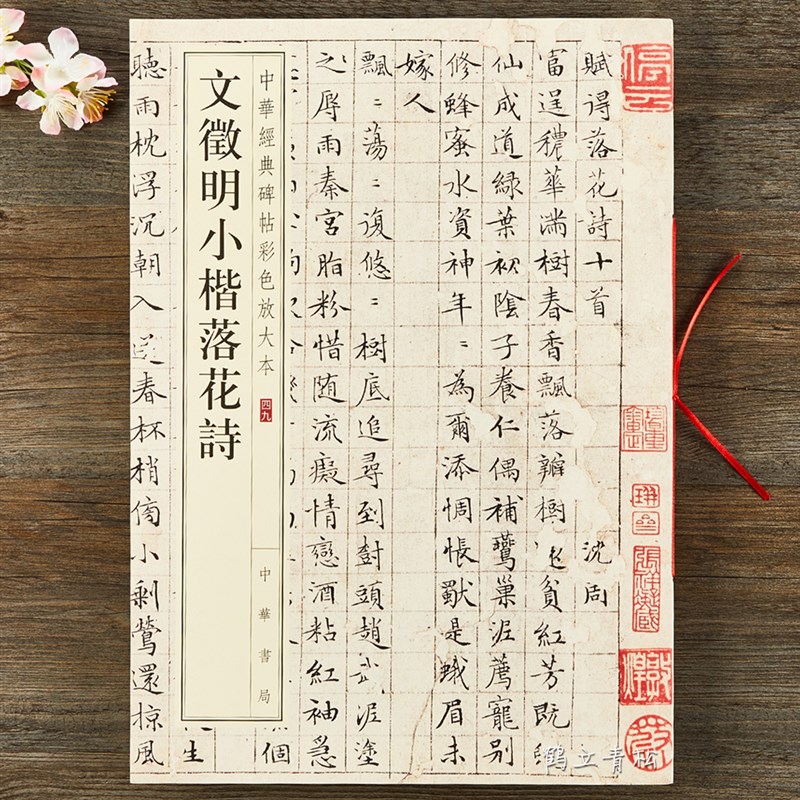 賦得落花詩十首 沈周
富逞穠華滿樹春香飄落瓣樹貧紅芳既
仙成道綠葉初陰子養仁偶補鶯巢泥薦寵別
修蜂蜜水資神年〻為爾添惆悵獃是蛾眉未
嫁人
飄〻蕩〻復悠〻樹底追尋到樹頭趙武泥塗
之辱雨秦宮脂粉惜随流癡情戀酒粘紅袖急
個
中華經典碑帖彩色放大本 四九
文徵明小楷落花詩
中華書局
生
聽雨枕浮沉朝入春杯梢傍小剩鶯還掠風
停雲
鶴立青松